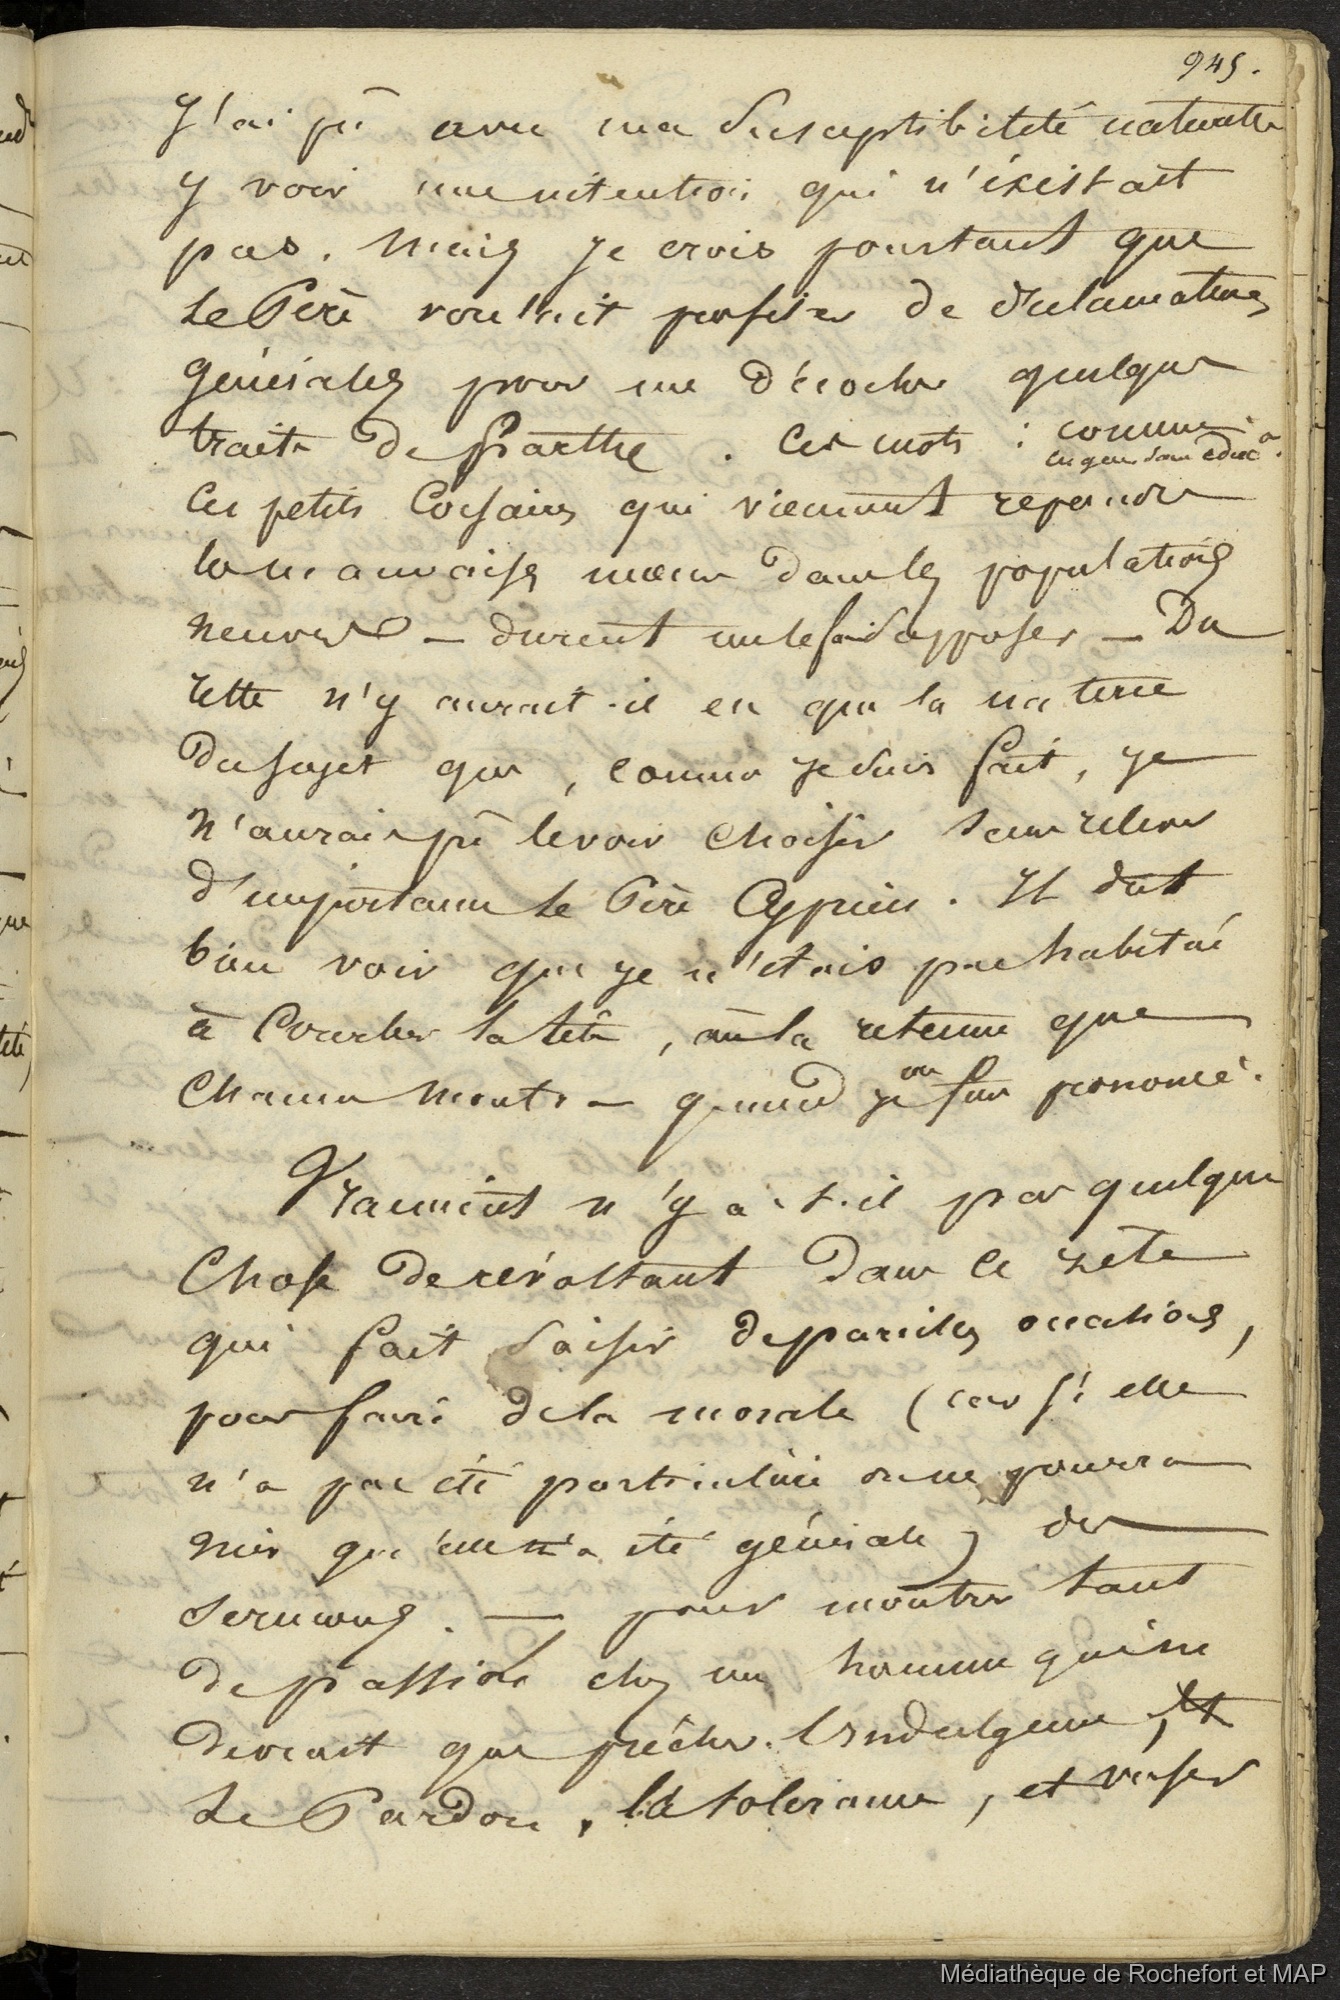 945.
J'ai pû avec ma susceptibileté naturelle
y voir une intention qui n'éxistait
pas. Mais je crois pourtant que
le Père voulait profiter de déclamations
générales pour me décocher quelque
traits de Parthe. Ces mots : comme
ces gens sans educ on.
Ces petits Corsaires qui viennent repandre
les mauvaises mœurs dans les populations
neuves — durent me le faire supposer — Du
reste n'y aurait-il eu que la nature
du sujet que, comme je suis fait, je
n'aurais pû le voir choisir sans relever
d'importance le Père Cyprien. Il doit
bien voir que je n'étais pas habitué
à Courber la tête, à la retenue que
Chacun montra — quand je fus prononcé.
on
Vraiment n'y a-t-il pas quelque
Chose de révoltant dans ce zèle
qui fait saisir de pareilles occasions,
pour faire de la morale (car si elle
n'a pas été particulière on ne pourra
nier qu'elle n'a été générale) des
sermons. — pour montrer tant
de passion chez un homme qui ne
devrait que prêcher l'Indulgence, et
le Pardon, la tolerance, et verser
Médiathèque de Rochefort et MAP